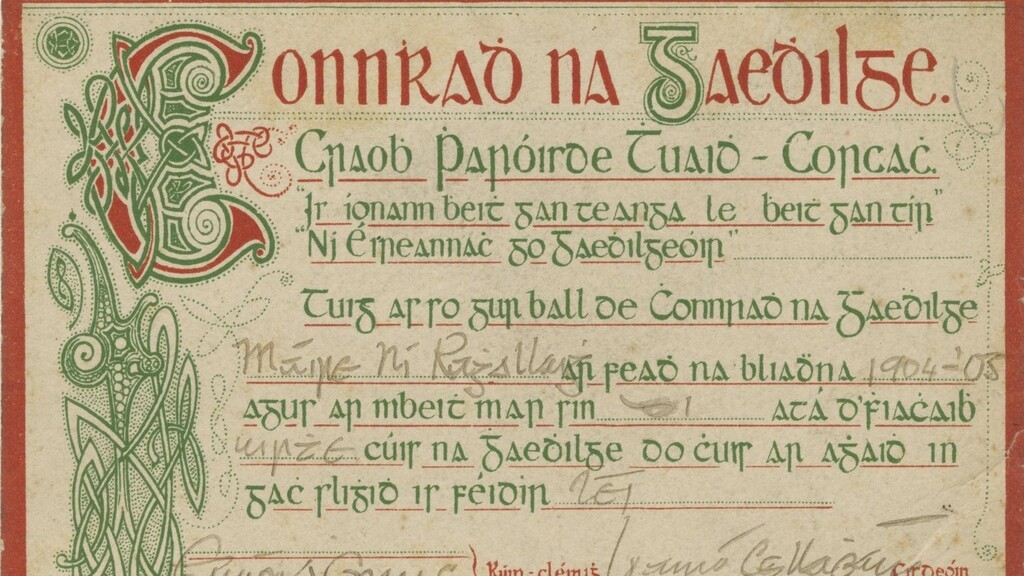 Connraḋ na Gaeḋilge.
Craoḃ Ṗaróisde Ṫuaiḋ - Corcaċ.
"Is ionann beiṫ gan teanga le beiṫ gan tír"
"Ní Éireannaċ go Gaeḋilgeóir"
Tuig as so gur ball de Ċonnraḋ na Gaeḋilge
Máire Ní Raġallaiġ ar feaḋ na bliaḋna 1904-'05
agus ar mbeiṫ mar sin di atá d'ḟiaċaiḃ
uirṫe cúis na Gaeḋilge do ċur ar aġaiḋ in
gaċ sliġiḋ is féidir léi
Rún-cléiriġ Cisdeóir